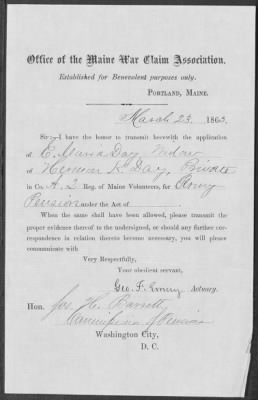 Office of the Maine War Claim Association.
Established for Benevolent purposes only.
PORTLAND, MAINE.
March 23, 1863.
Sir:-I have the honor to transmit herewith the application
of E. Maria Day Widow
of Heman K. Day, Private
in Co. A. 2 Reg. of Maine Volunteers, for Army
Pension under the Act of
When the same shall have been allowed, please transmit the
proper evidence thereof to the undersigned, or should any further cor-
respondence in relation thereto become necessary, you will please
communicate with
Very Respectfully,
Your obedient servant,
Geo. F. Emery Actuary.
Hon. Jos. H. Barrett
Commissioner of Pensions
Washington City,
D. C.